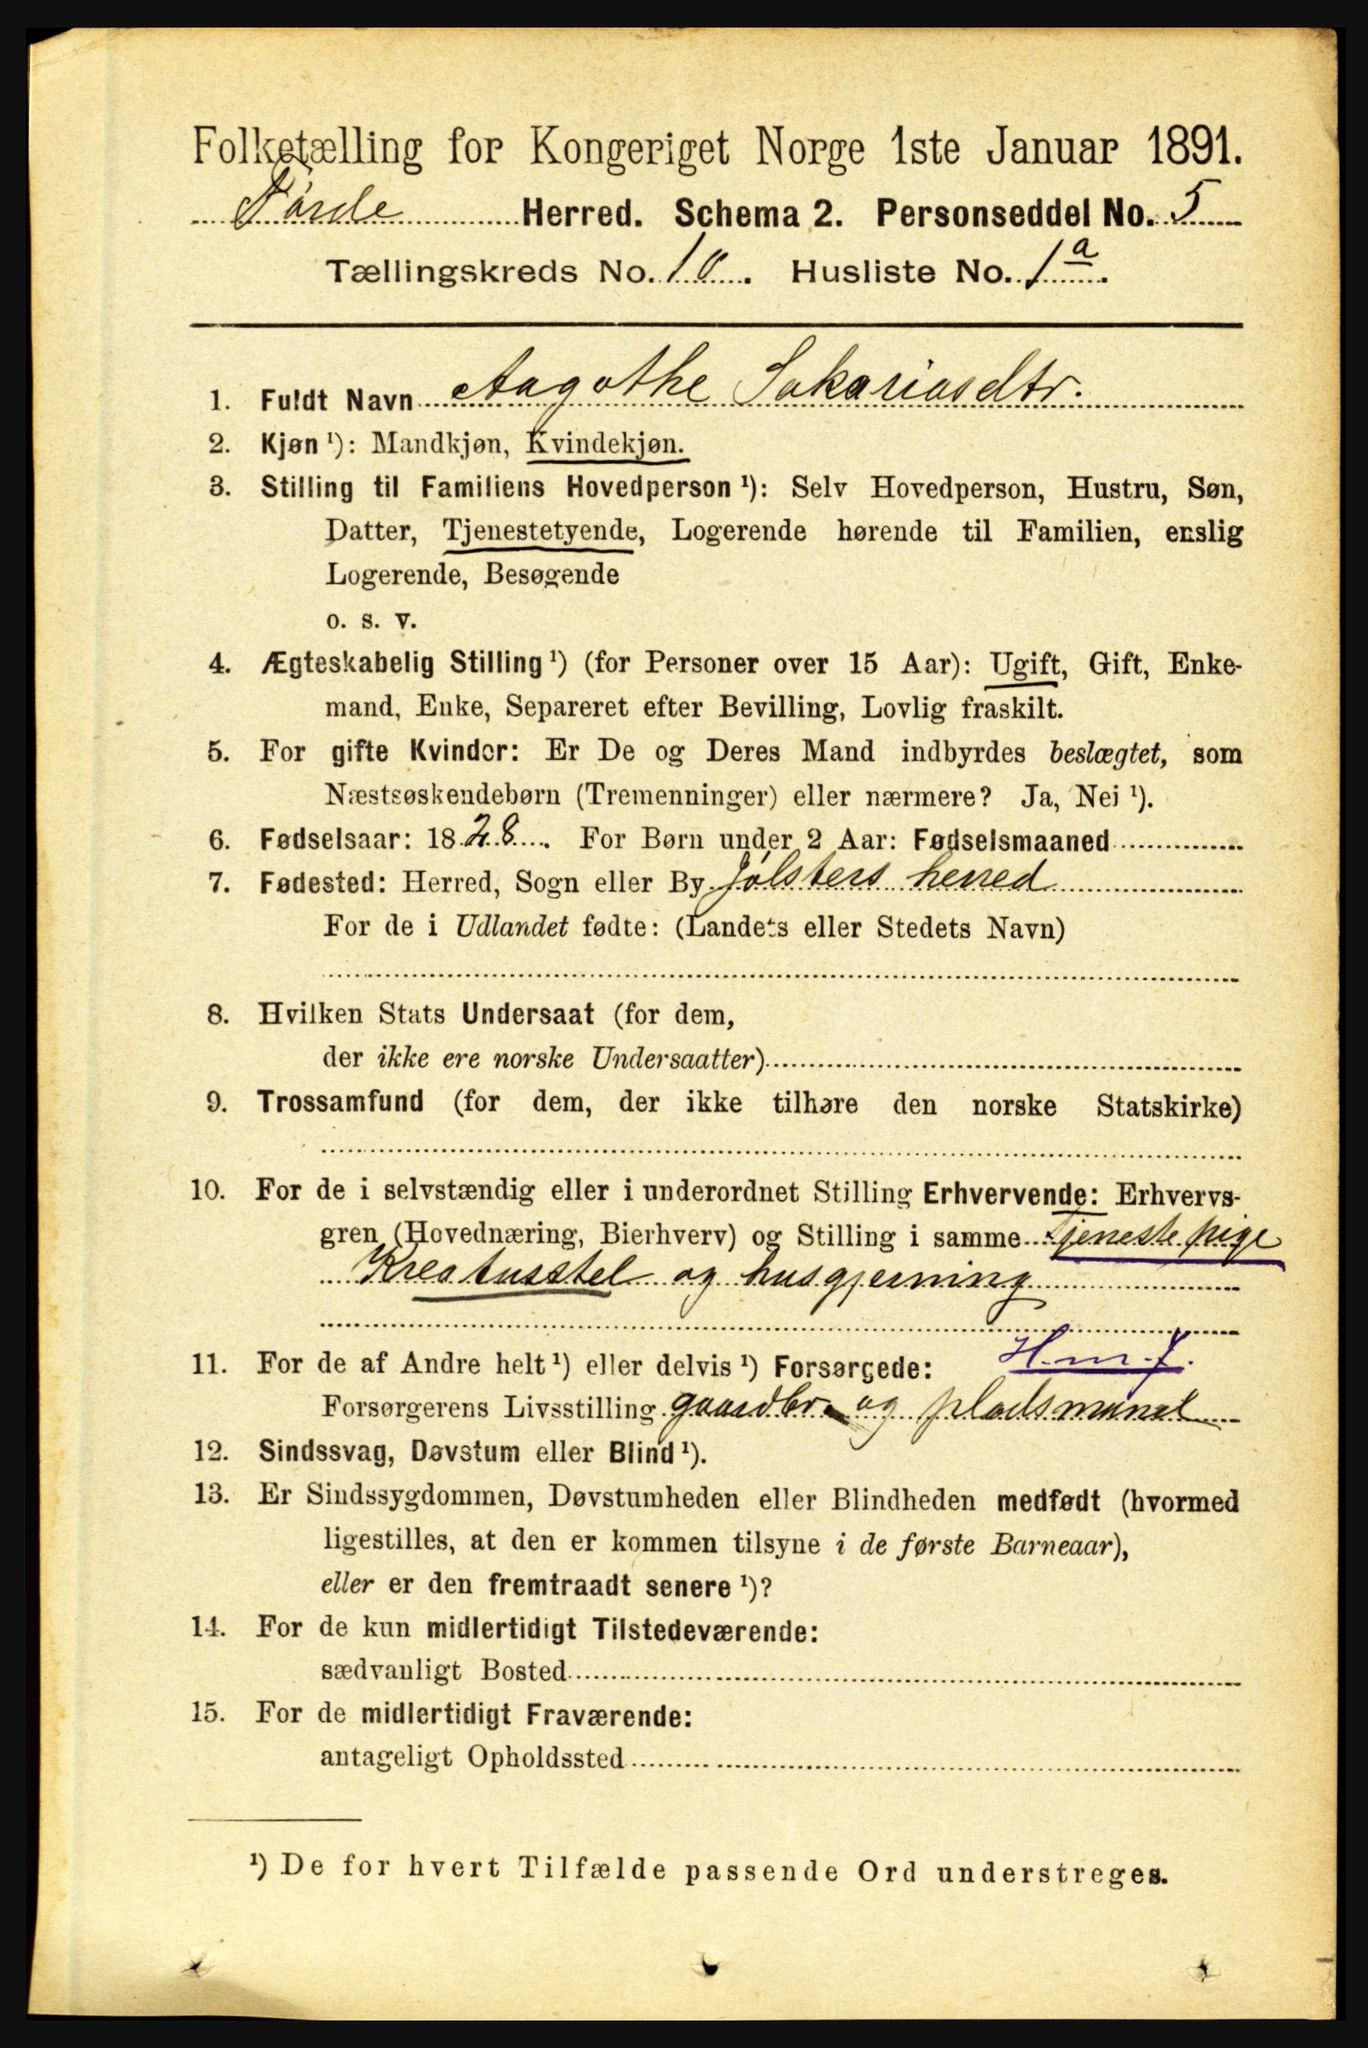 Folketælling for Kongeriget Norge 1ste Januar 1891.
Førde Herred. Schema 2. Personseddel No. 5
Tællingskreds No. 10. Husliste No. 1a.
1. Fuldt Navn Aagothe Sakariasdtr.
2. Kjøn ¹): Mandkjøn, Kvindekjøn.
3. Stilling til Familiens Hovedperson ¹): Selv Hovedperson, Hustru, Søn,
Datter, Tjenestetyende, Logerende hørende til Familien, enslig
Logerende, Besøgende
o. s. v.
4. Ægteskabelig Stilling ¹) (for Personer over 15 Aar): Ugift, Gift, Enke-
mand, Enke, Separeret efter Bevilling, Lovlig fraskilt.
5. For gifte Kvinder: Er De og Deres Mand indbyrdes beslægtet, som
Næstsøskendebørn (Tremenninger) eller nærmere? Ja, Nei ¹).
6. Fødselsaar: 1828. For Børn under 2 Aar: Fødselsmaaned
7. Fødested: Herred, Sogn eller By Jølsters herred
For de i Udlandet fødte: (Landets eller Stedets Navn)
8. Hvilken Stats Undersaat (for dem,
der ikke ere norske Undersaatter)
9. Trossamfund (for dem, der ikke tilhøre den norske Statskirke)
10. For de i selvstændig eller i underordnet Stilling Erhvervende: Erhvervs-
gren (Hovednæring, Bierhverv) og Stilling i samme Tjenestepige
Kreaturstel og husgjerning
H.m.f.
11. For de af Andre helt ¹) eller delvis ¹) Forsørgede:
Forsørgerens Livsstilling gaardbr. og pladsmand
12. Sindssvag, Døvstum eller Blind ¹).
13. Er Sindssygdommen, Døvstumheden eller Blindheden medfødt (hvormed
ligestilles, at den er kommen tilsyne i de første Barneaar),
eller er den fremtraadt senere ¹)?
14. For de kun midlertidigt Tilstedeværende:
sædvanligt Bosted
15. For de midlertidigt Fraværende:
antageligt Opholdssted
¹) De for hvert Tilfælde passende Ord understreges.